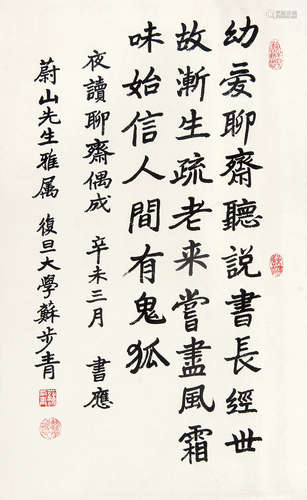 幼愛聊齋聽說書長經世
故漸生疏老来嘗盡風霜
味始信人間有鬼狐
夜讀聊齋偶成 辛未三月 書應
蔚山先生雅属 復旦大學蘇步青